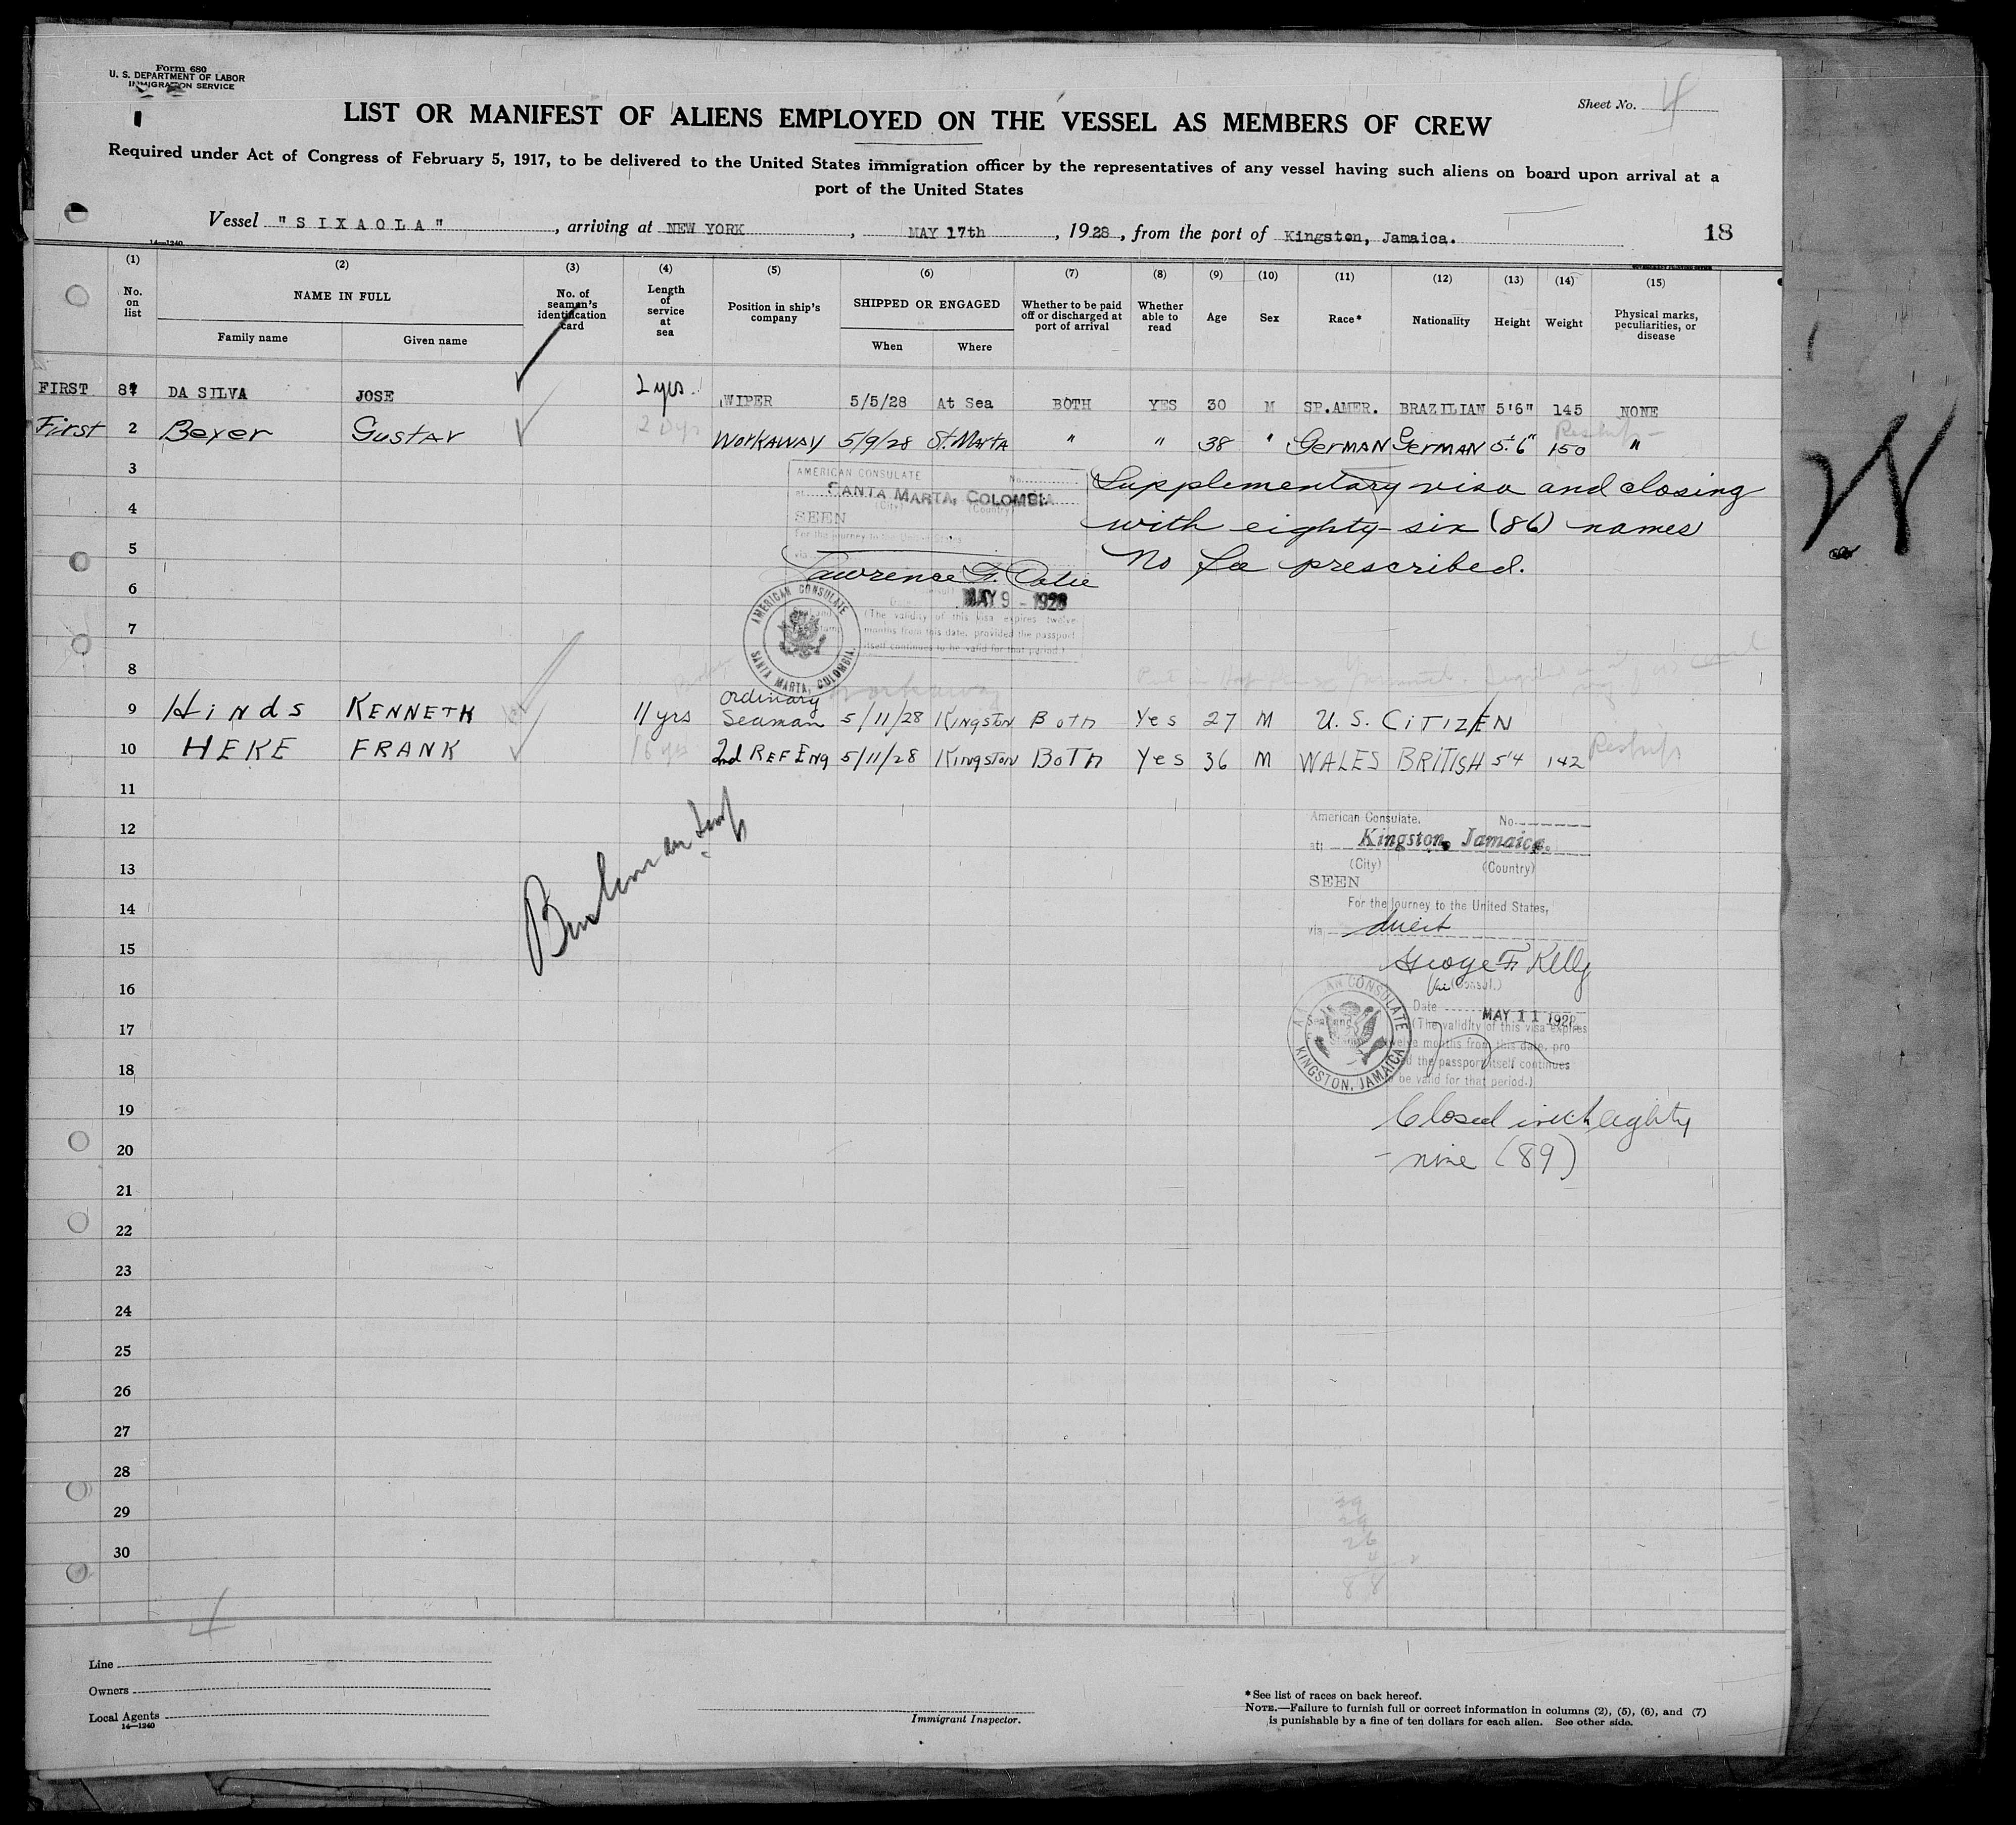 Form 680
U. S. DEPARTMENT OF LABOR
IMMIGRATION SERVICE
Sheet No. 4
LIST OR MANIFEST OF ALIENS EMPLOYED ON THE VESSEL AS MEMBERS OF CREW
Required under Act of Congress of February 5, 1917, to be delivered to the United States immigration officer by the representatives of any vessel having such aliens on board upon arrival at a
port of the United States
Vessel "SIXAOLA", arriving at NEW YORK, MAY 17th, 1928, from the port of Kingston, Jamaica.
18
14—1240
(1) (2) (3) (4) (5) (6) (7) (8) (9) (10) (11) (12) (13) (14) (15)
No. on list
NAME IN FULL
Family name
Given name
No. of seaman's identification card
Length of service at sea
Position in ship's company
SHIPPED OR ENGAGED
When
Where
Whether to be paid off or discharged at port of arrival
Whether able to read
Age
Sex
Race*
Nationality
Height
Weight
Physical marks, peculiarities, or disease
FIRST 81 DA SILVA JOSE 2 yrs. WIPER 5/5/28 At Sea BOTH YES 30 M SP.AMER. BRAZILIAN 5'6" 145 NONE
First 2 Beyer Gustav WORKAWAY 5/9/28 St. Marta " " 38 " GERMAN GERMAN 5'6" 150 "
3
AMERICAN CONSULATE
No.
at SANTA MARTA, COLOMBIA
(City) (Country)
SEEN
For the journey to the United States
via
Supplementary visa and closing
with eighty-six (86) names
No fee prescribed.
4
5
6
Lawrence F.
MAY 9 - 1928
(The validity of this visa expires twelve
months from this date, provided the passport
itself continues to be valid for that period.)
AMERICAN CONSULATE
SANTA MARTA, COLOMBIA.
7
8
workaway
9 Hinds KENNETH 11 yrs ordinary Seaman 5/11/28 KINGSTON BOTH Yes 27 M U. S. CITIZEN
10 HEKE FRANK 16 yrs 2nd REF ENG 5/11/28 KINGSTON BOTH Yes 36 M WALES BRITISH 5'4 142
11
12
13
14
15
16
17
18
19
20
21
22
23
24
25
26
27
28
29
30
American Consulate, No.
at Kingston, Jamaica.
(City) (Country)
SEEN
For the journey to the United States,
via direct
George F Kelly
Vice (Consul.)
Date MAY 11 1928
(The validity of this visa expires
twelve months from this date, pro
the passport itself continues
be valid for that period.)
AMERICAN CONSULATE
KINGSTON, JAMAICA
Closed with eighty
-nine (89)
29
29
26
4
88
4
W
Line
Owners
Local Agents
14—1240
Immigrant Inspector.
*See list of races on back hereof.
NOTE.—Failure to furnish full or correct information in columns (2), (5), (6), and (7)
is punishable by a fine of ten dollars for each alien. See other side.